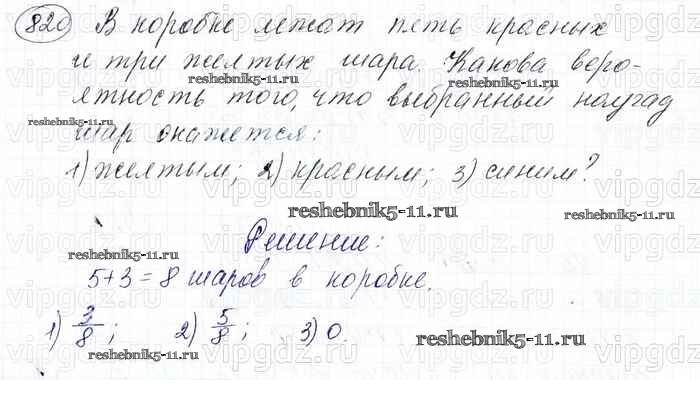 820 В коробке лежат пять красных
и три желтых шара. Какова веро-
reshebnik5-11.ru
ятность того, что выбранный наугад
reshebnik5-11.ru
шар окажется:
1) желтым; 2) красным; 3) синим?
reshebnik5-11.ru
reshebnik5-11.ru
Решение:
reshebnik5-11.ru
5+3=8 шаров в коробке.
1) 3/8; 2) 5/8; 3) 0.
reshebnik5-11.ru
reshebnik5-11.ru
vipgdz.ru